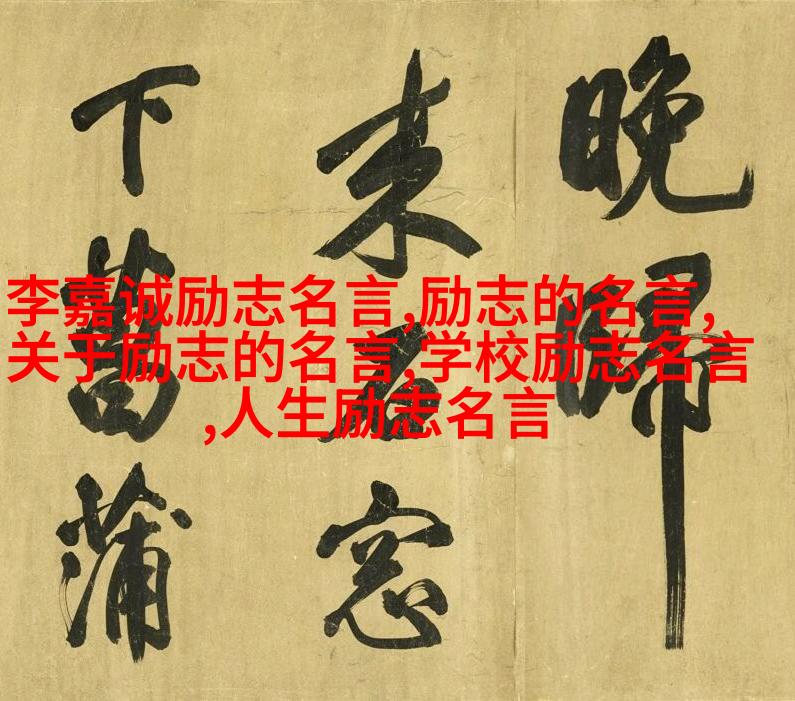 晚歸
来石窓
下菖蒲
李嘉诚励志名言,励志的名言,
关于励志的名言,学校励志名言
,人生励志名言